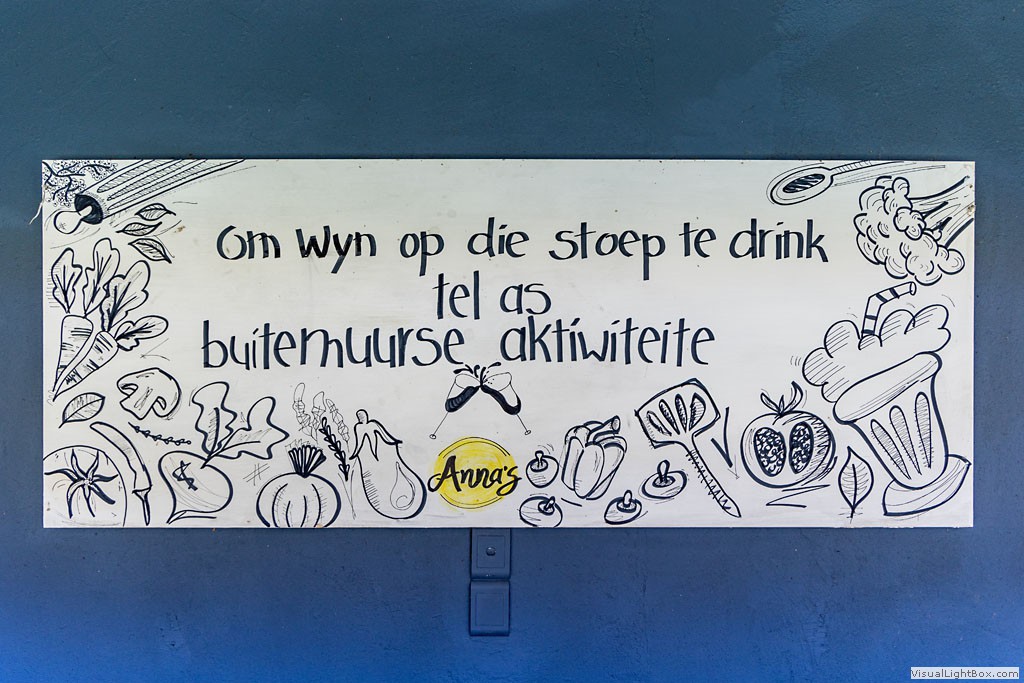 Om Wyn op die stoep te drink
tel as
buitemuurse aktiwiteite
Anna's
VisualLightBox.com